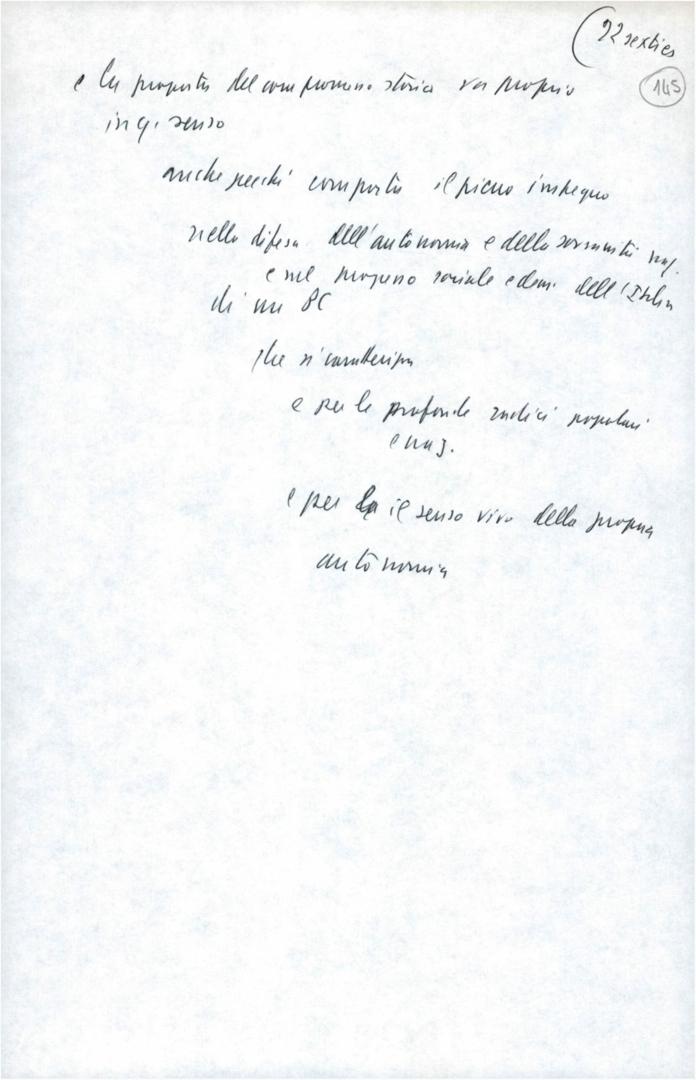 (22 sexties
145
e la proposta del compromesso storico va proprio
in q. senso
anche perché comporta il pieno impegno
nella difesa dell'autonomia e della sovranità naz.
e nel progresso sociale e dem. dell'Italia
di un PC
che si caratterizza
e per le profonde radici popolari
e naz.
e per la il senso vivo della propria
autonomia